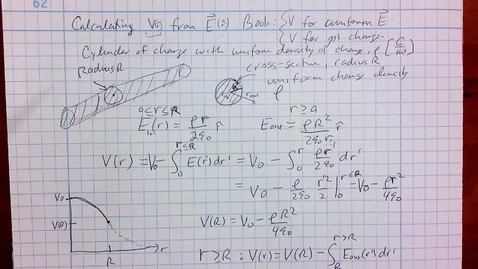 62
Calculating V(r) from E⃗(r) Book: {V for uniform E⃗
{V for pt. charge
Cylinder of charge with uniform density of charge, ρ [C/m³]
Radius R
cross-section, radius R
uniform charge density
ρ
0≤r≤R r≥a
E⃗in(r) = ρr/2ε₀ r̂ Eout = ρR²/2ε₀r r̂
V(r) = V₀ - ∫₀^{r≤R} E(r')dr' = V₀ - ∫₀^r ρr'/2ε₀ dr'
= V₀ - ρ/2ε₀ r'²/2 |₀^{r≤R} = V₀ - ρr²/4ε₀
V₀
V(R)
R
r
V(R) = V₀ - ρR²/4ε₀
r≥R : V(r) = V(R) - ∫_R^{r>R} Eout(r')dr'